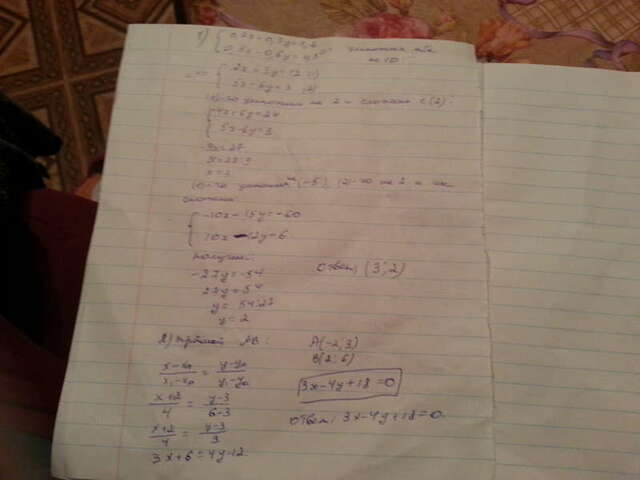 1) { 0,2x+0,3y=1,2
0,5x-0,6y=0,3 умножим обе
на 10
{ 2x+3y=12 (1)
5x-6y=3 (2)
(1)-ую умножим на 2 и сложим с (2):
{ 4x+6y=24
5x-6y=3
9x=27
x=27:9
x=3
(1)-ую умножим на (-5), (2)-ую на 2 и
сложим
{ -10x-15y=-60
10x-12y=6
получим:
-27y=-54
27y=54
y=54:27
y=2
Ответ: (3; 2)
2) прямой AB:
A(-2; 3)
B(2; 6)
x+2/4 = y-3/6-3
x+2/4 = y-3/3
3x+6=4y-12
3x-4y+18=0
Ответ: 3x-4y+18=0.